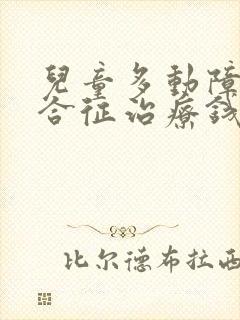 兒童多動障
合征治療錢
比尔德布拉西